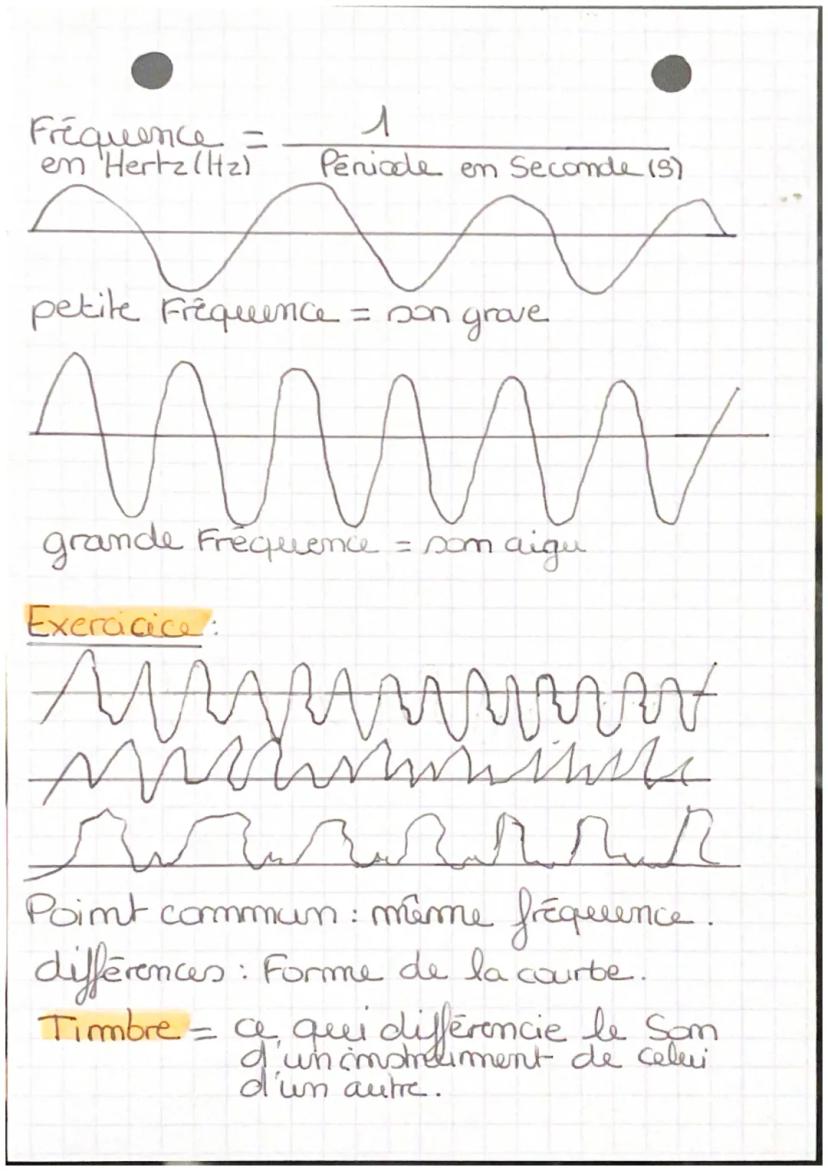 Fréquence = 1
en Hertz (Hz) Période en Seconde (s)
petite Fréquence = son grave
grande Fréquence = son aigu
Exercicice :
Point commun : même fréquence.
différences : Forme de la courbe.
Timbre = ce qui différencie le Son
d'un instrument de celui
d'un autre.